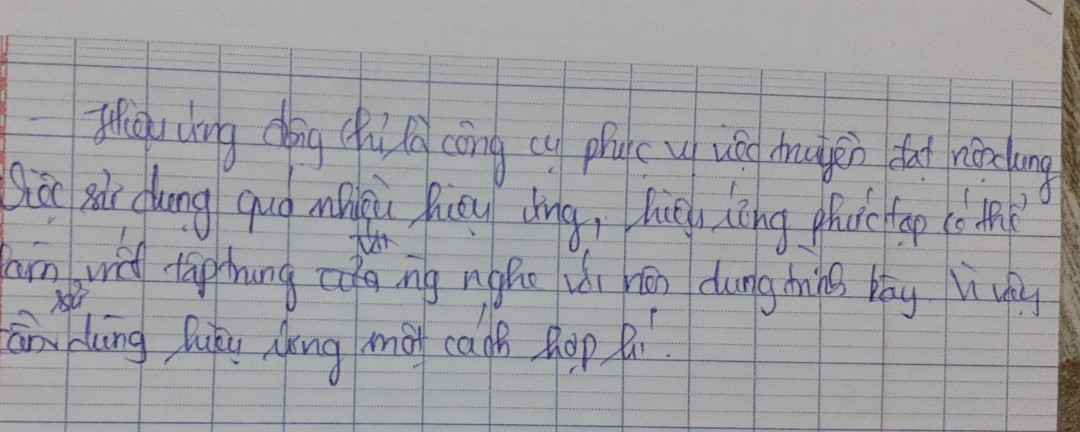 - Hiệu ứng động chỉ là công cụ phục vụ việc truyền đạt nội dung
Việc sử dụng quá nhiều hiệu ứng, hiệu ứng phức tạp có thể
làm mất tập trung của ng nghe với nội dung trình bày. Vì vậy
cần sử dụng hiệu ứng một cách hợp lí.